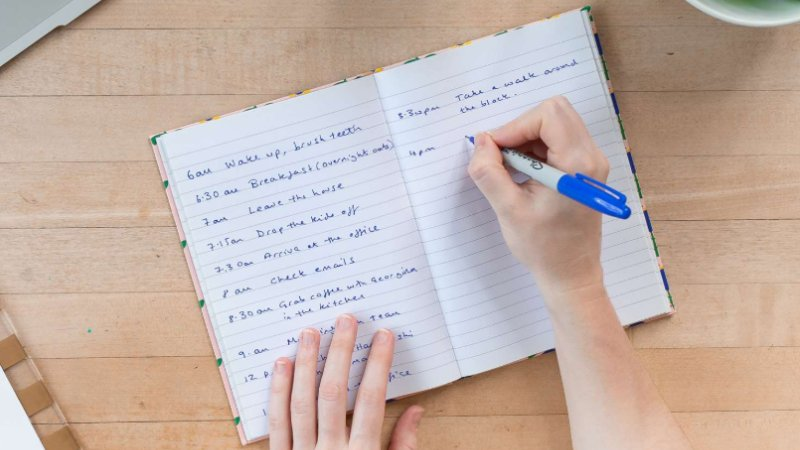 6am Wake up, brush teeth
6:30am Breakfast (overnight oats)
7am Leave the house
7.15am Drop the kids off
7.30am Arrive at the office
8am Check emails
8.30am Grab coffee with Georgina
in the kitchen
9.am team
12
office
3.30pm Take a walk around
the block.
4pm